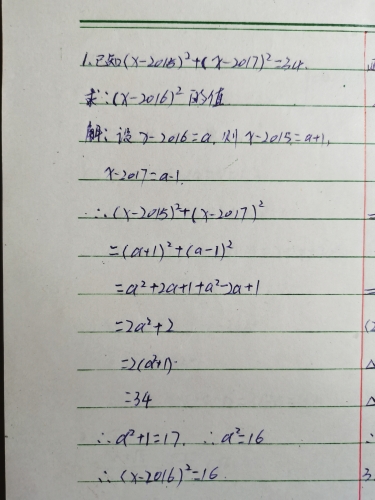 1.已知(x-2015)²+(x-2017)²=34.
求:(x-2016)²的值
解:设x-2016=a,则x-2015=a+1,
x-2017=a-1.
∴(x-2015)²+(x-2017)²
=(a+1)²+(a-1)²
=a²+2a+1+a²-2a+1
=2a²+2
=2(a²+1).
=34
∴a²+1=17. ∴a²=16
∴(x-2016)²=16